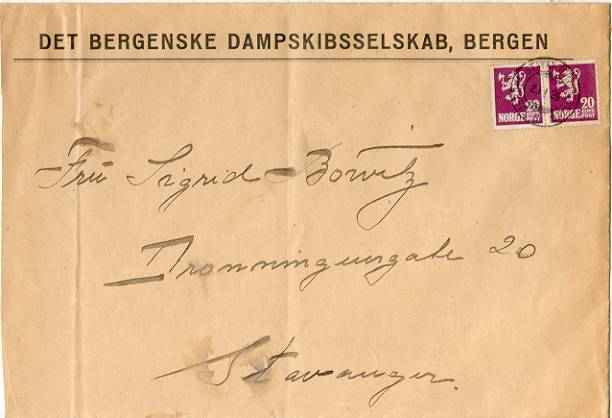 DET BERGENSKE DAMPSKIBSSELSKAB, BERGEN
20 20
NORGE POST NORGE POST
Fru Sigrid Bowitz
Dronningensgate 20
Stavanger.